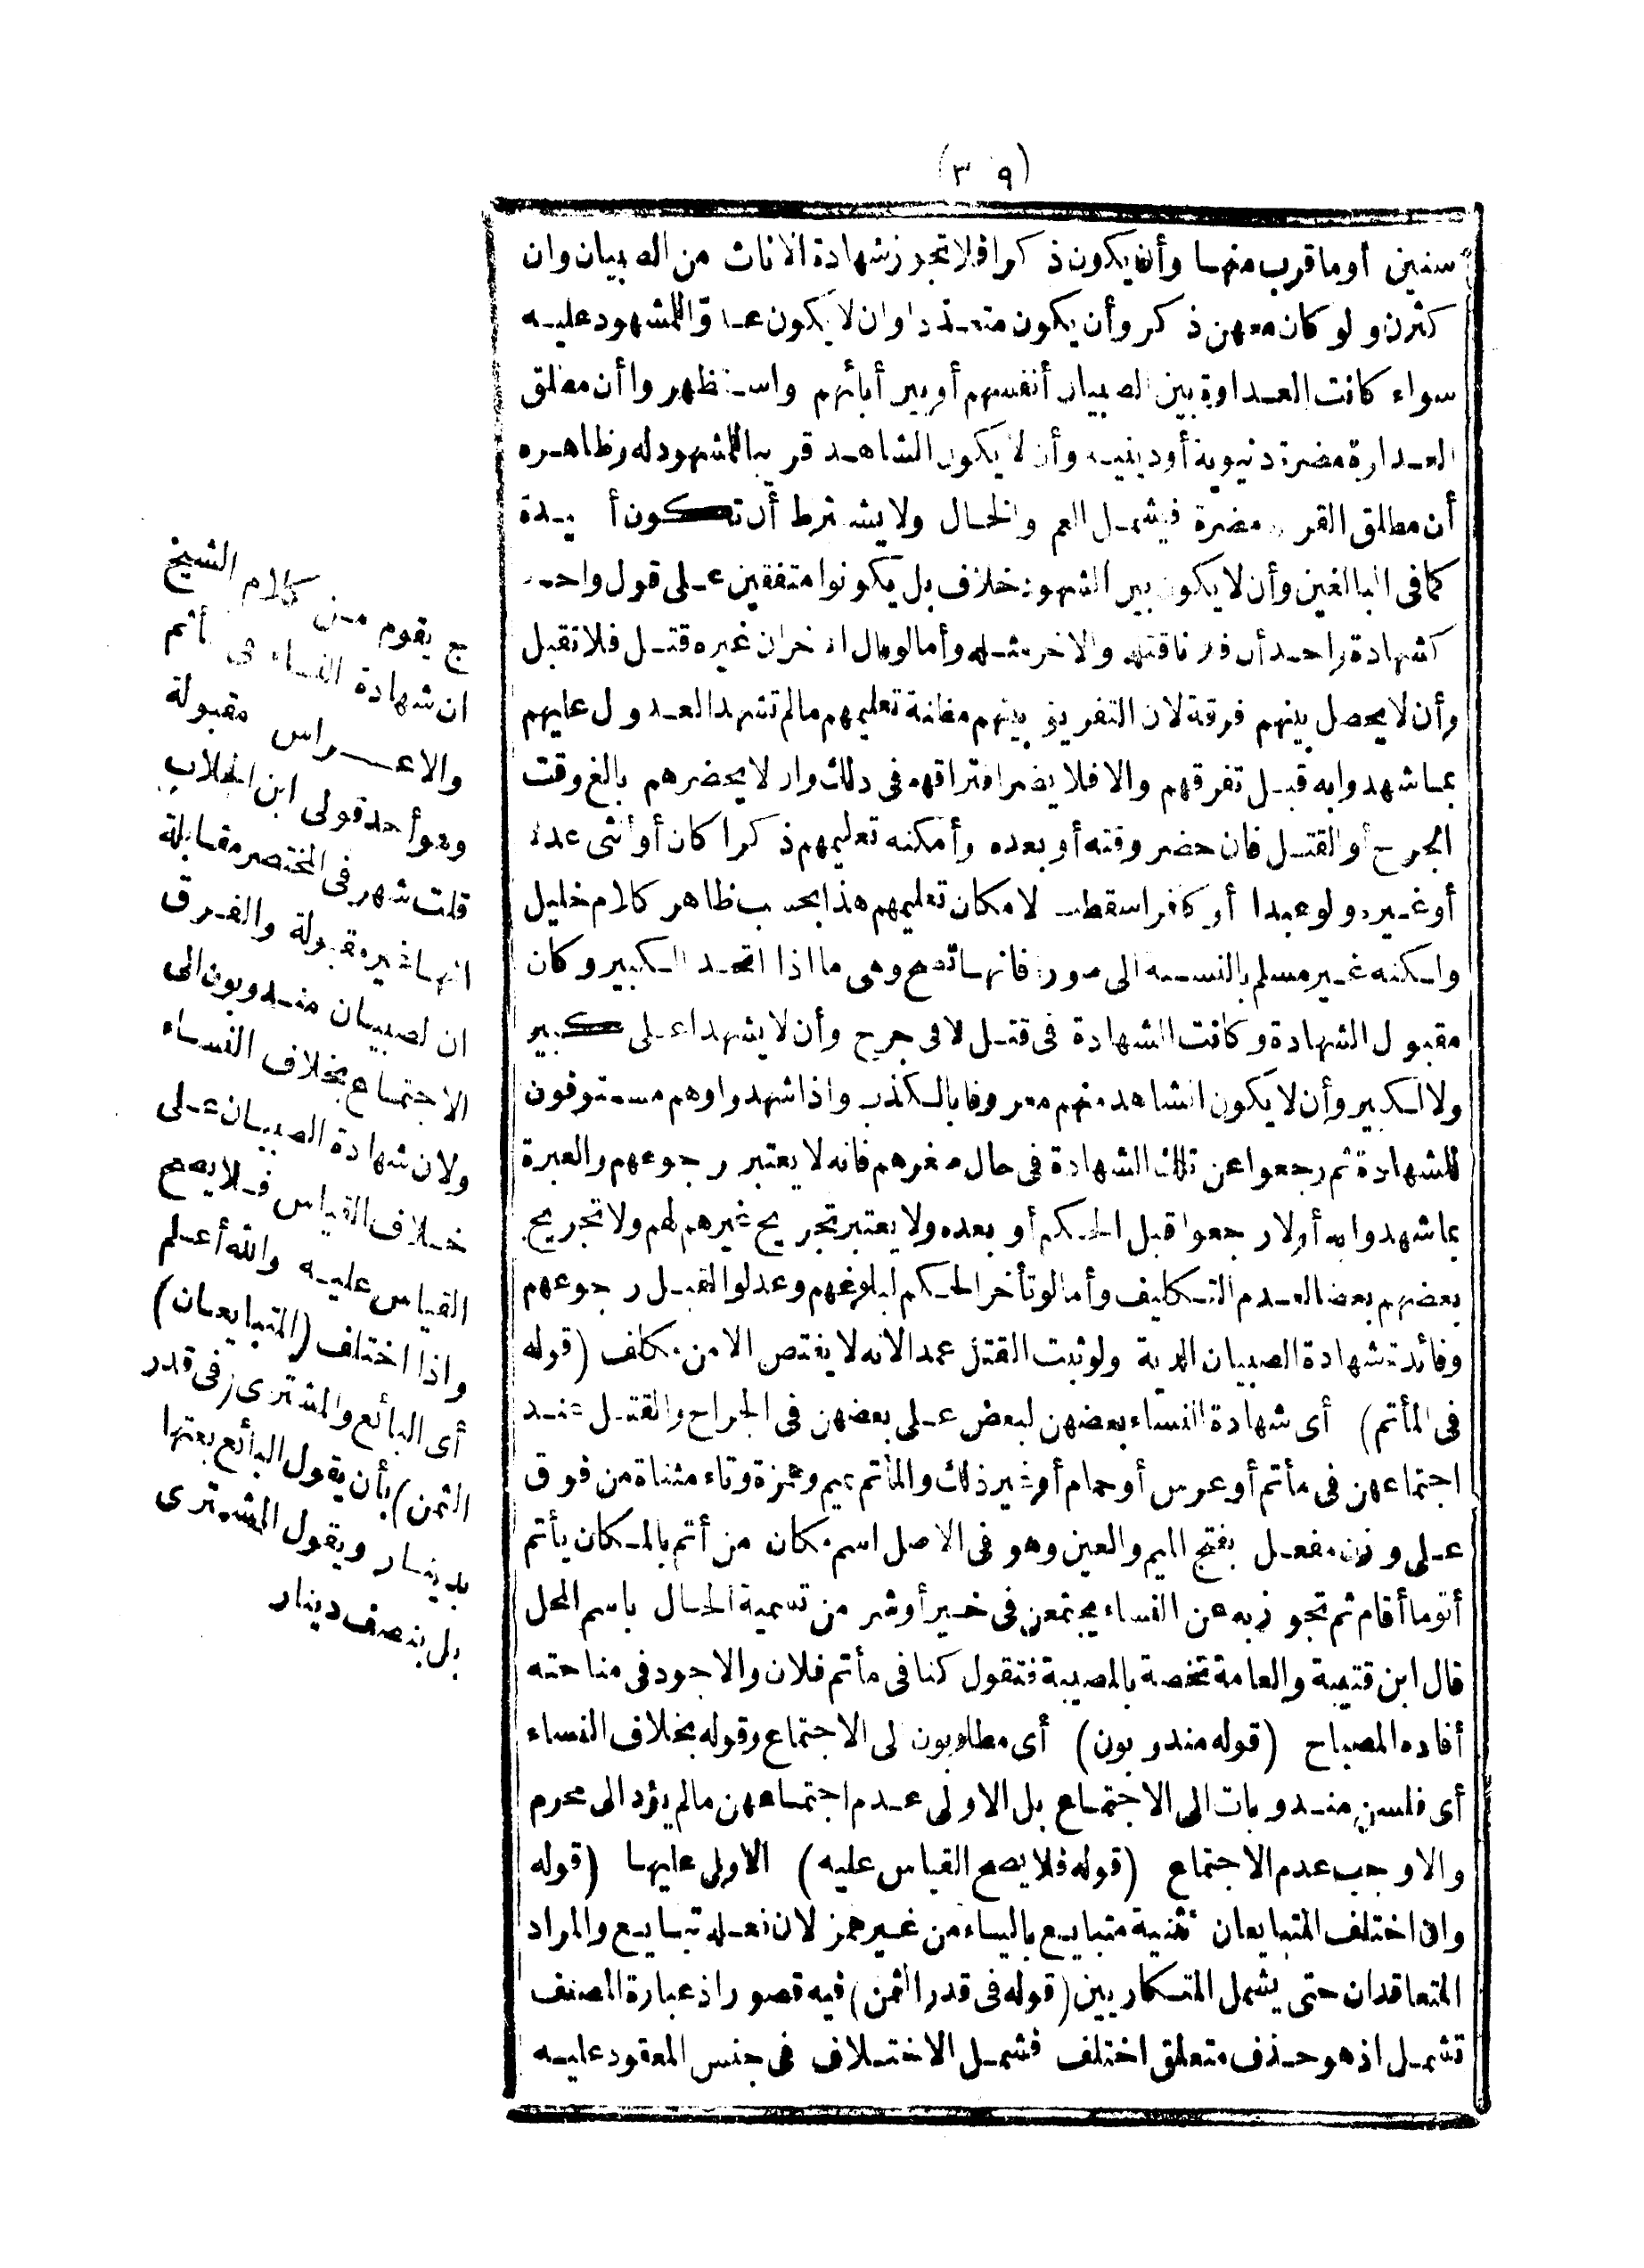 (٣٩)
سنين أوما قرب منها وأن يكون ذكرا فلا تجوز شهادة الاناث من الصبيان وان
كثرن ولو كان معهن ذكر وأن يكون متعددا وان لا يكون عدوّا للمشهود عليه
سواء كانت العداوة بين الصبيان أنفسهم أو بين أبائهم واستظهروا أن مطلق
العداوة مضرة دنيوية أودينية وأن لا يكون الشاهد قريبا للمشهود له وظاهره
أن مطلق القرابة مضرة فيشمل العم والخال ولا يشترط أن تكون أكيدة
كما فى البالغين وأن لا يكون بين الشهود خلاف بل يكونوا متفقين على قول واحد
كشهادة واحد أن فلانا قتله والاخر مثله وأما لو قال اخران غيره قتل فلا تقبل
وأن لا يحصل بينهم فرقة لان التفريق بينهم مظنة تعليمهم مالم تشهد العدول عليهم
بما شهدوا به قبل تفرقهم والا فلا يضر افتراقهم فى ذلك وان لا يحضرهم بالغ وقت
الجرح أو القتل فان حضر وقته أو بعده وأمكنه تعليمهم ذكرا كان أو أنثى عدلا
أو غيره ولو عبدا أو كافرا سقطت لامكان تعليمهم هذا بحسب ظاهر كلام خليل
ولكنه غير مسلم بالنسبة الى صورة فانها تصح وهى ما اذا اتحد الكبير وكان
مقبول الشهادة وكانت الشهادة فى قتل لا فى جرح وأن لا يشهدا على كبير
ولا لكبير وأن لا يكون الشاهد منهم معروفا بالكذب واذا شهدوا وهم مستوفون
للشهادة ثم رجعوا عن تلك الشهادة فى حال صغرهم فانه لا يعتبر رجوعهم والعبرة
بما شهدوا به أولا رجعوا قبل الحكم أو بعده ولا يعتبر تجريح غيرهم لهم ولا تجريح
بعضهم بعضا لعدم التكليف وأما لو تأخر الحكم لبلوغهم وعدلوا لقبل رجوعهم
وفائدة شهادة الصبيان الدية ولو ثبت القتل عمدا لانه لا يقتص الا من مكلف (قوله
فى المأتم) أى شهادة النساء بعضهن لبعض على بعضهن فى الجراح والقتل عند
اجتماعهن فى مأتم أو عرس أو حمام أو غير ذلك والمأتم بميم وهمزة وتاء مثناة من فوق
على وزن مفعل بفتح الميم والعين وهو فى الاصل اسم مكان من أتم بالمكان يأتم
أتوما أقام ثم تجوز به عن النساء يجتمعن فى خير أو شر من تسمية الحال باسم المحل
قال ابن قتيبة والعامة تخصة بالمصيبة فتقول كنا فى مأتم فلان والاجود فى مناحته
أفاده المصباح (قوله مندوبون) أى مطلوبون الى الاجتماع وقوله بخلاف النساء
أى فلسن مندوبات الى الاجتماع بل الاولى عدم اجتماعهن مالم يؤد الى محرم
والا وجب عدم الاجتماع (قوله فلا يصح القياس عليه) الاولى عليها (قوله
وان اختلف المتبايعان تثنية متبايع بالياء من غير همز لان فعله تبايع والمراد
المتعاقدان حتى يشمل المتكاريين (قوله فى قدر الثمن) فيه قصور اذ عبارة المصنف
تشمل اذ هو حذف متعلق اختلف فشمل الاختلاف فى جنس المعقود عليه
ج يقوم من كلام الشيخ
ان شهادة النساء فى المأتم
والاعراس مقبولة
وهو أحد قولى ابن الجلاب
قلت شهر فى المختصر مقابلة
انها غير مقبولة والفرق
ان الصبيان مندوبون الى
الاجتماع بخلاف النساء
ولان شهادة الصبيان على
خلاف القياس فلا يصح
القياس عليه والله أعلم
واذا اختلف (المتبايعان)
أى البائع والمشترى (فى قدر
الثمن) بأن يقول البائع بعتها
بدينار ويقول المشترى
بل بنصف دينار